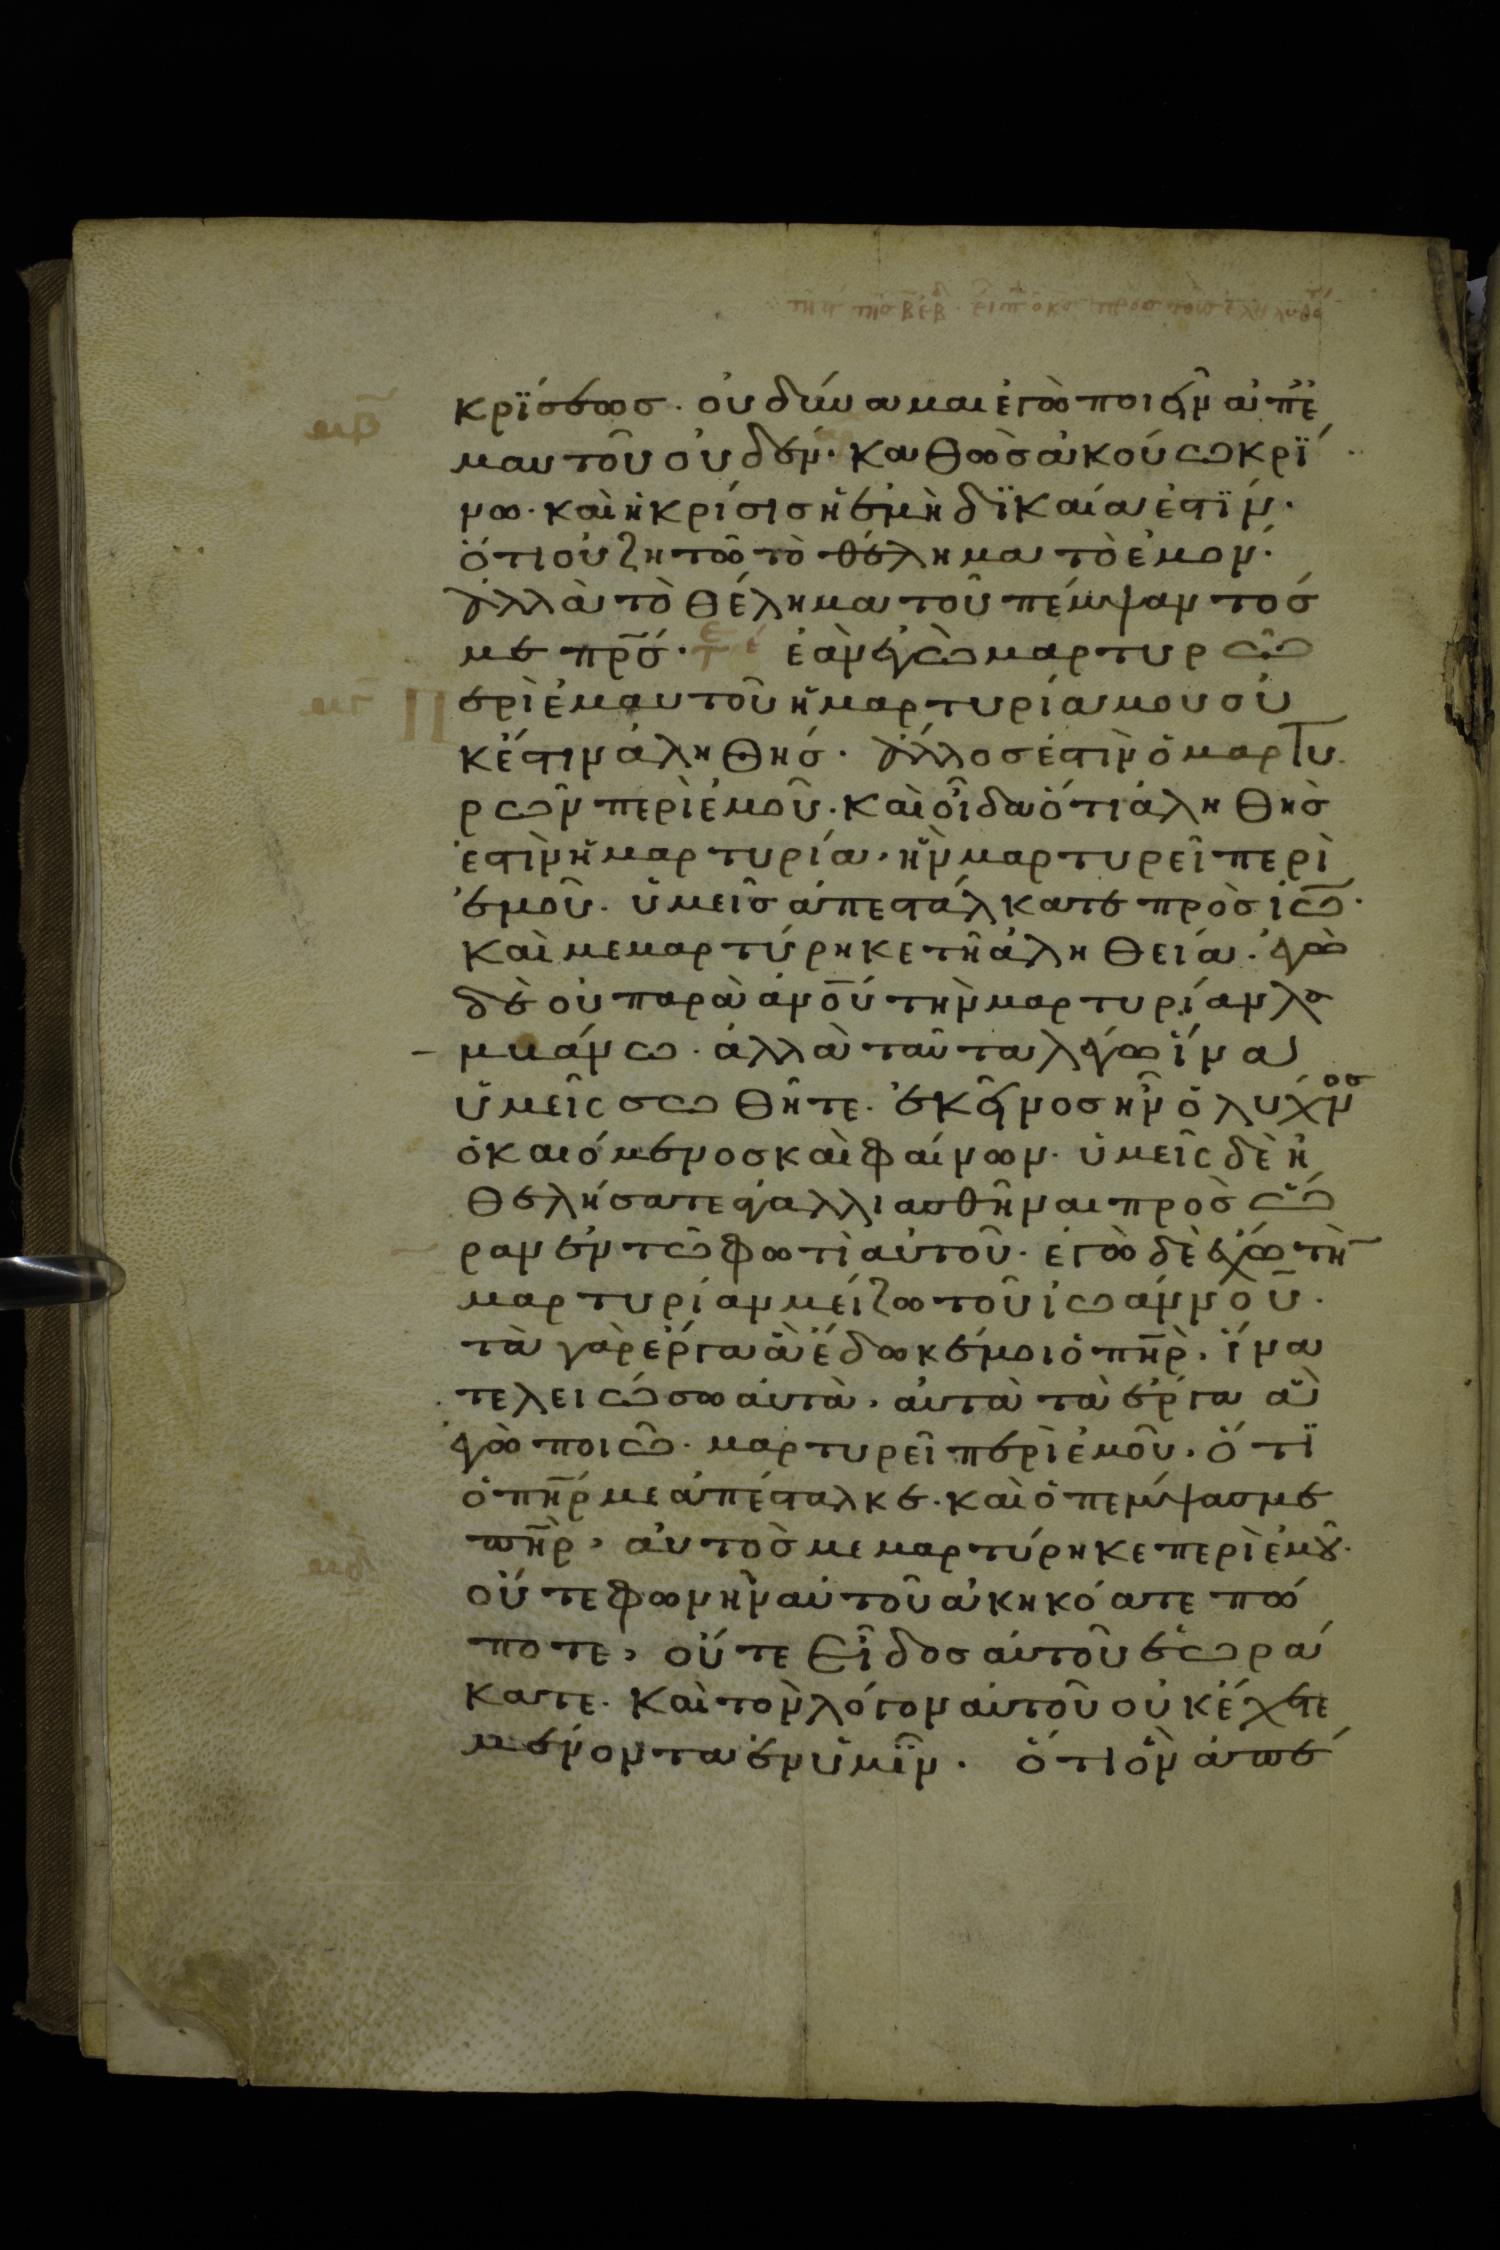 κρϊσεωσ. οὐ δύναμαι ἐγὼ ποιεῖν ἀπ̓ ἐ
μαυτοῦ οὐδέν. καθὼσ ἀκούω κρΐ
νω. καὶ ἡ κρίσισ ἡ ἐμὴ δϊκαία ἐστΐν.
ὅτι οὐ ζητῶ τὸ θέλημα τὸ ἐμόν.
ἀλλὰ τὸ θέλημα τοῦ πέμψαντόσ
με πρ̅σ. ἐὰν ἐγὼ μαρτυρῶ
περὶ ἐμαυτοῦ ἡ μαρτυρία μου οὐ
κ ἔστιν ἀληθήσ. ἄλλοσ ἐστὶν ὁ μαρτυ
ρῶν περὶ ἐμοῦ. καὶ οἶδα ὅτι ἀληθὴσ
ἐστὶν ἡ μαρτυρία, ἣν μαρτυρεῖ περὶ
ἐμοῦ. ὑμεῖσ ἀπεστάλκατε πρὸσ ἰω̅.
καὶ μεμαρτύρηκε τῆ ἀληθεία. ἐγὼ
δὲ οὐ παρὰ ἀν̅ου τὴν μαρτυρίαν λα
μβάνω. ἀλλὰ ταῦτα λέγω ἵνα
ὑμεῖς σωθῆτε. ἐκεῖνοσ ἦν ὁ λύχνοσ
ὁ καιόμενοσ καὶ φαίνων. ὑμεῖς δὲ ἠ
θελήσατε ἀγαλλιασθῆναι πρὸσ ὥ
ραν ἐν τῶ φωτὶ αὐτοῦ. ἐγὼ δὲ ἔχω τὴ̅
μαρτυρίαν μείζω τοῦ ἰωάννου.
τὰ γὰρ ἔργα ἃ ἔδωκέ μοι ὁ πη̅ρ. ἵνα
τελειώσω αὐτὰ, αὐτὰ τὰ ἔργα ἃ
ἐγὼ ποιῶ. μαρτυρεῖ περὶ ἐμοῦ, ὅτϊ
ὁ πη̅ρ με ἀπέσταλκε. καὶ ὁ πέμψασ με
πη̅ρ, αὐτὸσ μεμαρτύρηκε περὶ ἐμοῦ.
οὔτε φωνὴν αὐτοῦ ἀκηκόατε πώ
ποτε, οὔτε εἶδοσ αὐτοῦ ἑωρά
κατε. καὶ τὸν λόγον αὐτοῦ οὐκ ἔχετε
μένοντα ἐν ὑμῖν. ὅτι ὃν ἀπέ